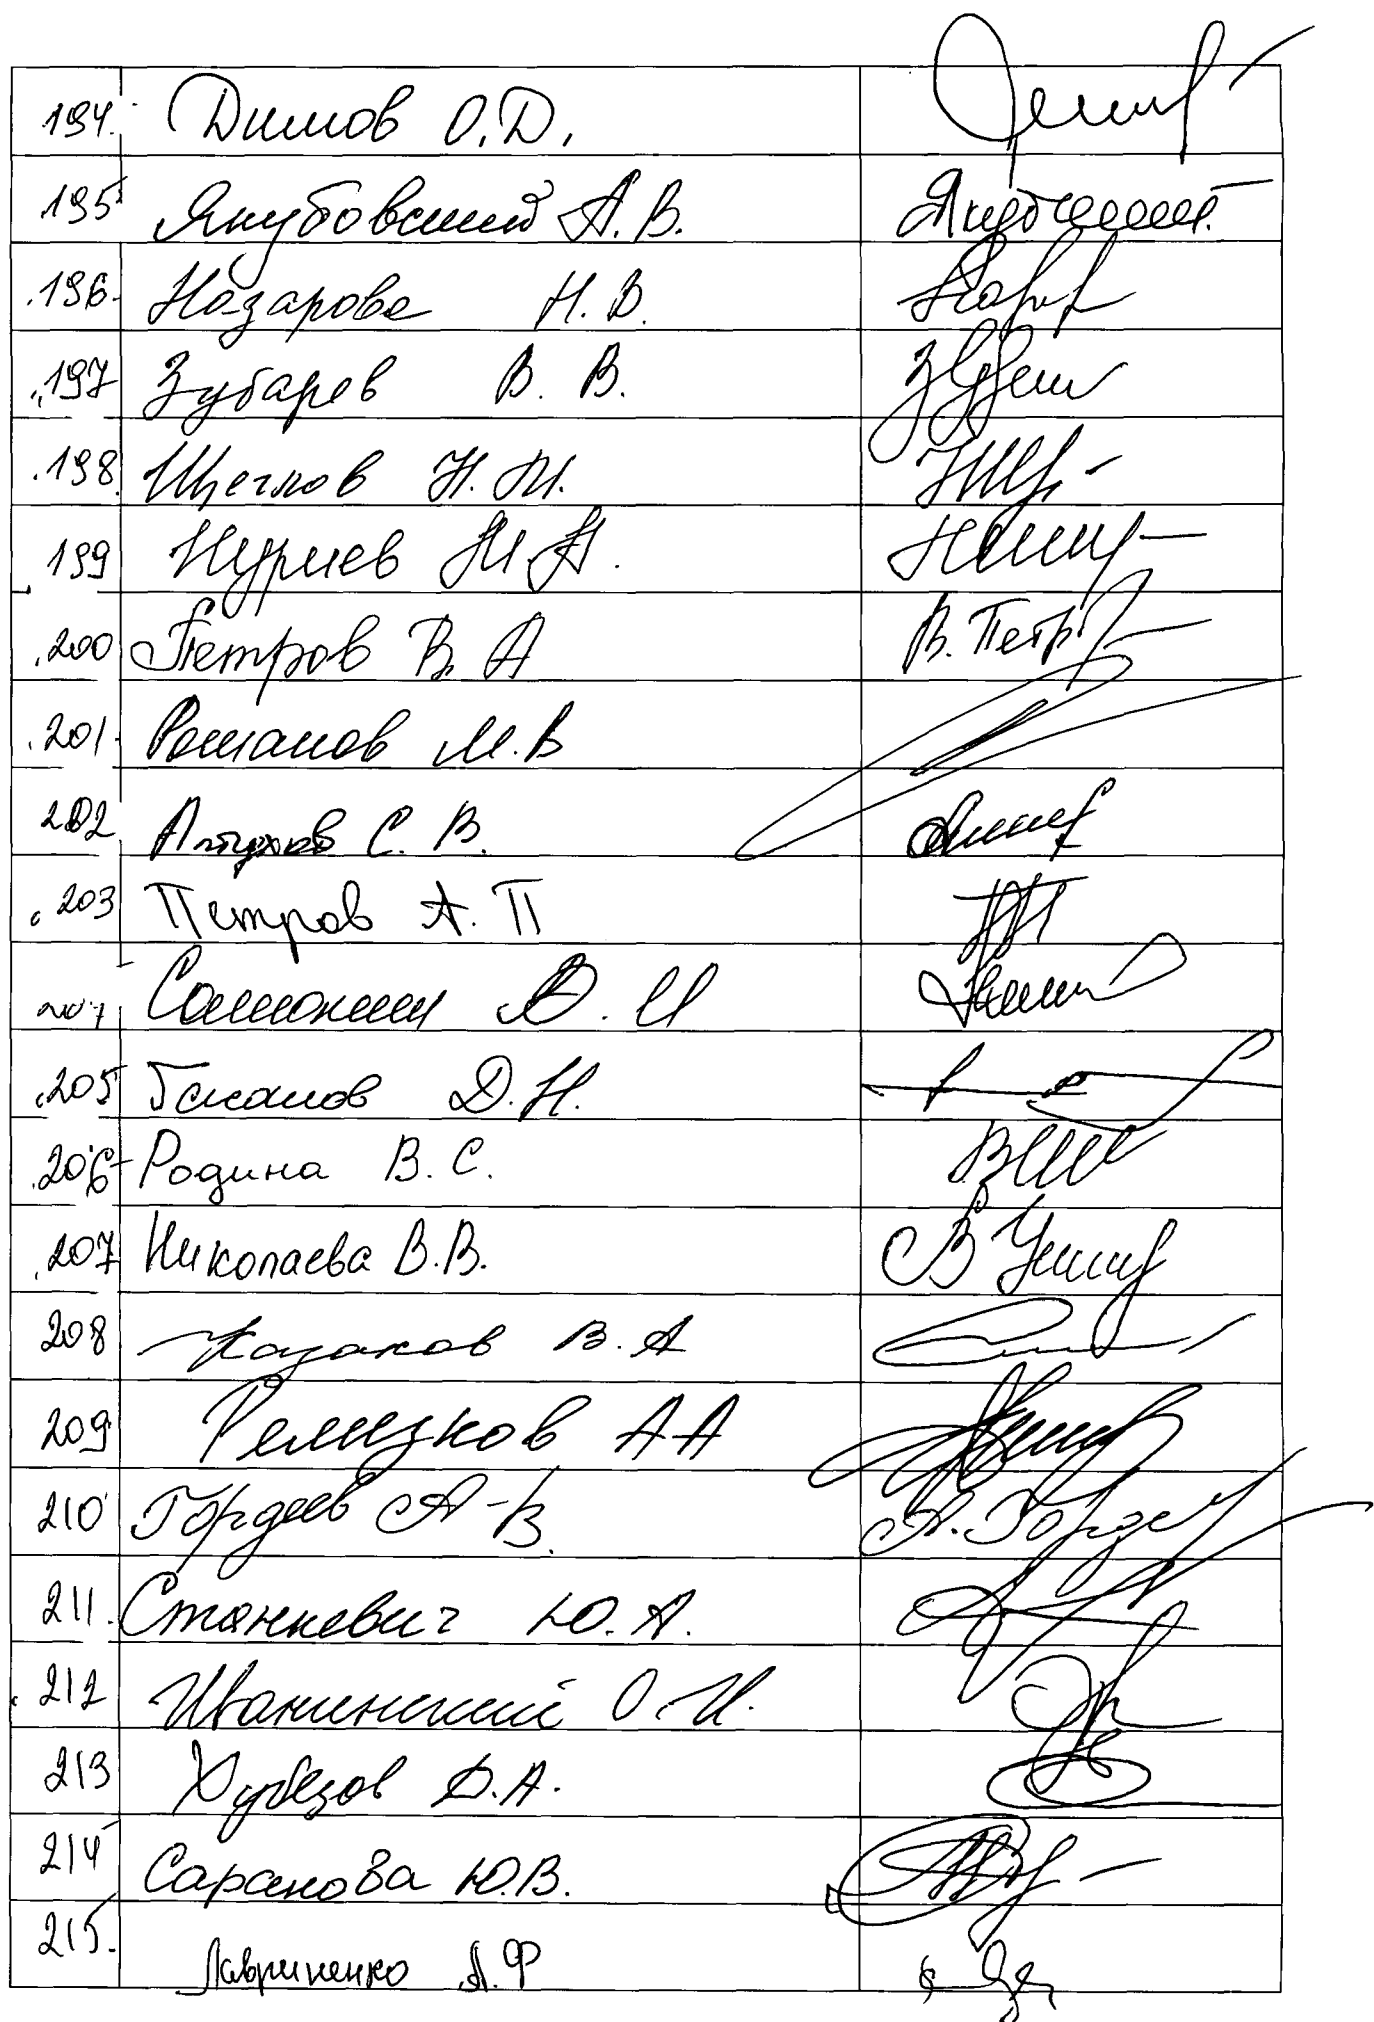 194. Димов О.Д.
195 Якубовский А.В.
196. Назарова Н.В.
197 Зубарев В. В.
198. Щеглов Н.М.
199 Нуриев И.А.
200 Петров В.А В. Петр
201. Романов М.В
202 С. В.
203 Петров А. П
Самохин И
205 Д.Н.
206 Родина В. С.
207 Николаева В.В.
208 Казаков В. А
209 Ремезков А А
210 Гордеев А-В. А. Горде
211. Станкевич Ю. А.
212 Иванинский О.И.
213 Хубезов Д.А.
214 Саранова Ю.В.
215. Лавриненко А.Ф